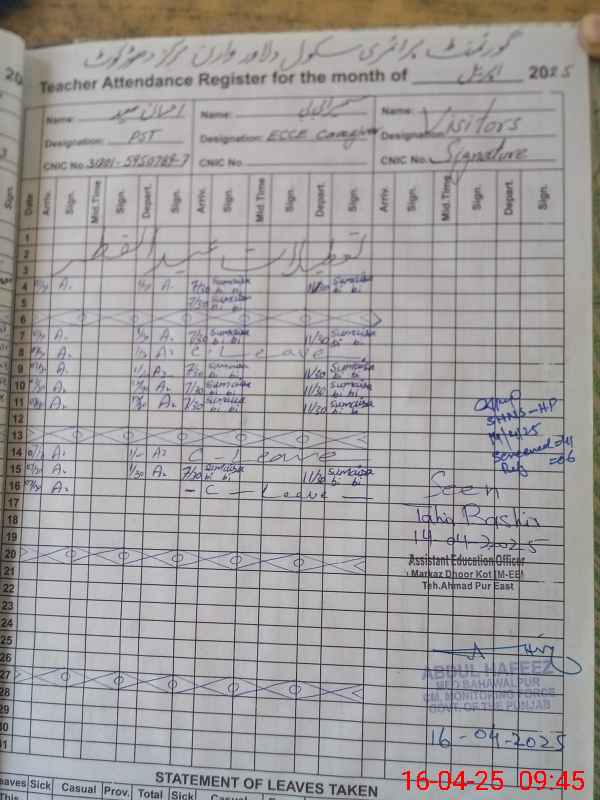 گورنمنٹ پرائمری سکول دلاور وارن مرکز دھوڑکوٹ
Teacher Attendance Register for the month of اپریل 2025
Name: احسان سعید Name: سمیرا بی بی Name: Visitors
Designation: PST Designation: ECCE Caregiver Designation:
CNIC No. 31201-5950789-7 CNIC No. CNIC No. Signature
Date Arriv. Sign. Mid.Time Sign. Depart. Sign. Arriv. Sign. Mid.Time Sign. Depart. Sign. Arriv. Sign. Mid.Time Sign. Depart. Sign.
1
2 تعطیلات عید الفطر
3
4 A. A. 7/30 Sumaira bi bi 11/30 Sumaira bi bi
5 7/30 Sumaira bi bi
6
7 A. A. 7/30 Sumaira bi bi 11/30 Sumaira bi bi
8 A. A. C. Leave
9 A. A. 7/30 Sumaira bi bi 11/30 Sumaira bi bi
10 A. A. 7/30 Sumaira bi bi 11/30 Sumaira bi bi
11 A. A. 7/30 Sumaira bi bi 11/30 Sumaira bi bi
12
13
14 A. A. C - Leave
15 A. A. 7/30 Sumaira bi bi 11/30 Sumaira bi bi
16 A. - C - Leave -
17
18
19
20
21
22
23
24
25
26
27
28
29
30
31
SHNS-HP
Screened
=06
Seen
Tahir Bashir
14-04-2025
Assistant Education Officer
Markaz Dhoor Kot (M-EE)
Teh. Ahmad Pur East
ABDUL HAFEEZ
BAHAWALPUR
CM. MONITORING FORCE
GOVT. OF THE PUNJAB
16-04-2025
STATEMENT OF LEAVES TAKEN
Leaves Sick Casual Prov. Total Sick Casual
16-04-25 09:45